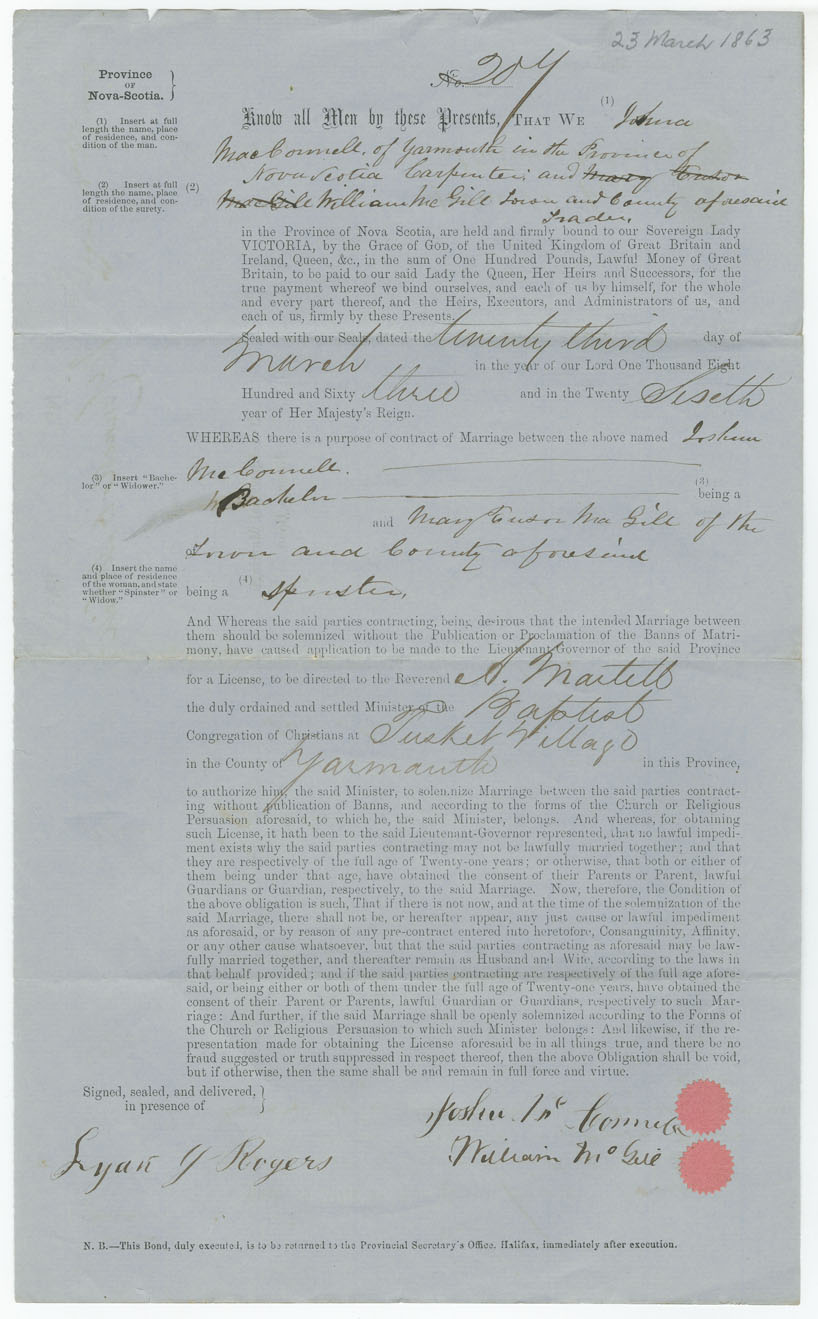 23 March 1863
Province
OF
Nova-Scotia.
No. 207
(1) Insert at full
length the name, place
of residence, and con-
dition of the man.
Know all Men by these Presents, THAT WE (1) Joshua
MacConnell, of Yarmouth in the Province of
Nova Scotia Carpenter; and Mary Tusor
(2) Insert at full
length the name, place
of residence, and con-
dition of the surety.
(2) MacGill William McGill Town and County aforesaid
Trader,
in the Province of Nova Scotia, are held and firmly bound to our Sovereign Lady
VICTORIA, by the Grace of GOD, of the United Kingdom of Great Britain and
Ireland, Queen, &c., in the sum of One Hundred Pounds, Lawful Money of Great
Britain, to be paid to our said Lady the Queen, Her Heirs and Successors, for the
true payment whereof we bind ourselves, and each of us by himself, for the whole
and every part thereof, and the Heirs, Executors, and Administrators of us, and
each of us, firmly by these Presents.
Sealed with our Seals, dated the twenty third day of
March in the year of our Lord One Thousand Eight
Hundred and Sixty three and in the Twenty Sixeth
year of Her Majesty's Reign.
WHEREAS there is a purpose of contract of Marriage between the above named Joshua
McConnell.
(3) Insert "Bache-
lor" or "Widower."
Bachelor (3) being a
and Mary Tusor MaGill of the
Town and County aforesaid
(4) Insert the name
and place of residence
of the woman, and state
whether "Spinster" or
"Widow."
being a (4) Spinster,
And Whereas the said parties contracting, being desirous that the intended Marriage between
them should be solemnized without the Publication or Proclamation of the Banns of Matri-
mony, have caused application to be made to the Lieutenant Governor of the said Province
for a License, to be directed to the Reverend A. Martell
the duly ordained and settled Minister of the Baptist
Congregation of Christians at Tusket Village
in the County of Yarmouth in this Province,
to authorize him, the said Minister, to solemnize Marriage between the said parties contract-
ing without publication of Banns, and according to the forms of the Church or Religious
Persuasion aforesaid, to which he, the said Minister, belongs. And whereas, for obtaining
such License, it hath been to the said Lieutenant-Governor represented, that no lawful impedi-
ment exists why the said parties contracting may not be lawfully married together; and that
they are respectively of the full age of Twenty-one years; or otherwise, that both or either of
them being under that age, have obtained the consent of their Parents or Parent, lawful
Guardians or Guardian, respectively, to the said Marriage. Now, therefore, the Condition of
the above obligation is such, That if there is not now, and at the time of the solemnization of the
said Marriage, there shall not be, or hereafter appear, any just cause or lawful impediment
as aforesaid, or by reason of any pre-contract entered into heretofore, Consanguinity, Affinity,
or any other cause whatsoever, but that the said parties contracting as aforesaid may be law-
fully married together, and thereafter remain as Husband and Wife, according to the laws in
that behalf provided; and if the said parties contracting are respectively of the full age afore-
said, or being either or both of them under the full age of Twenty-one years, have obtained the
consent of their Parent or Parents, lawful Guardian or Guardians, respectively to such Mar-
riage: And further, if the said Marriage shall be openly solemnized according to the Forms of
the Church or Religious Persuasion to which such Minister belongs: And likewise, if the re-
presentation made for obtaining the License aforesaid be in all things true, and there be no
fraud suggested or truth suppressed in respect thereof, then the above Obligation shall be void,
but if otherwise, then the same shall be and remain in full force and virtue.
Signed, sealed, and delivered,
in presence of
Joshu Mc Connell
William McGill
Rogers
N. B.—This Bond, duly executed, is to be returned to the Provincial Secretary's Office, Halifax, immediately after execution.